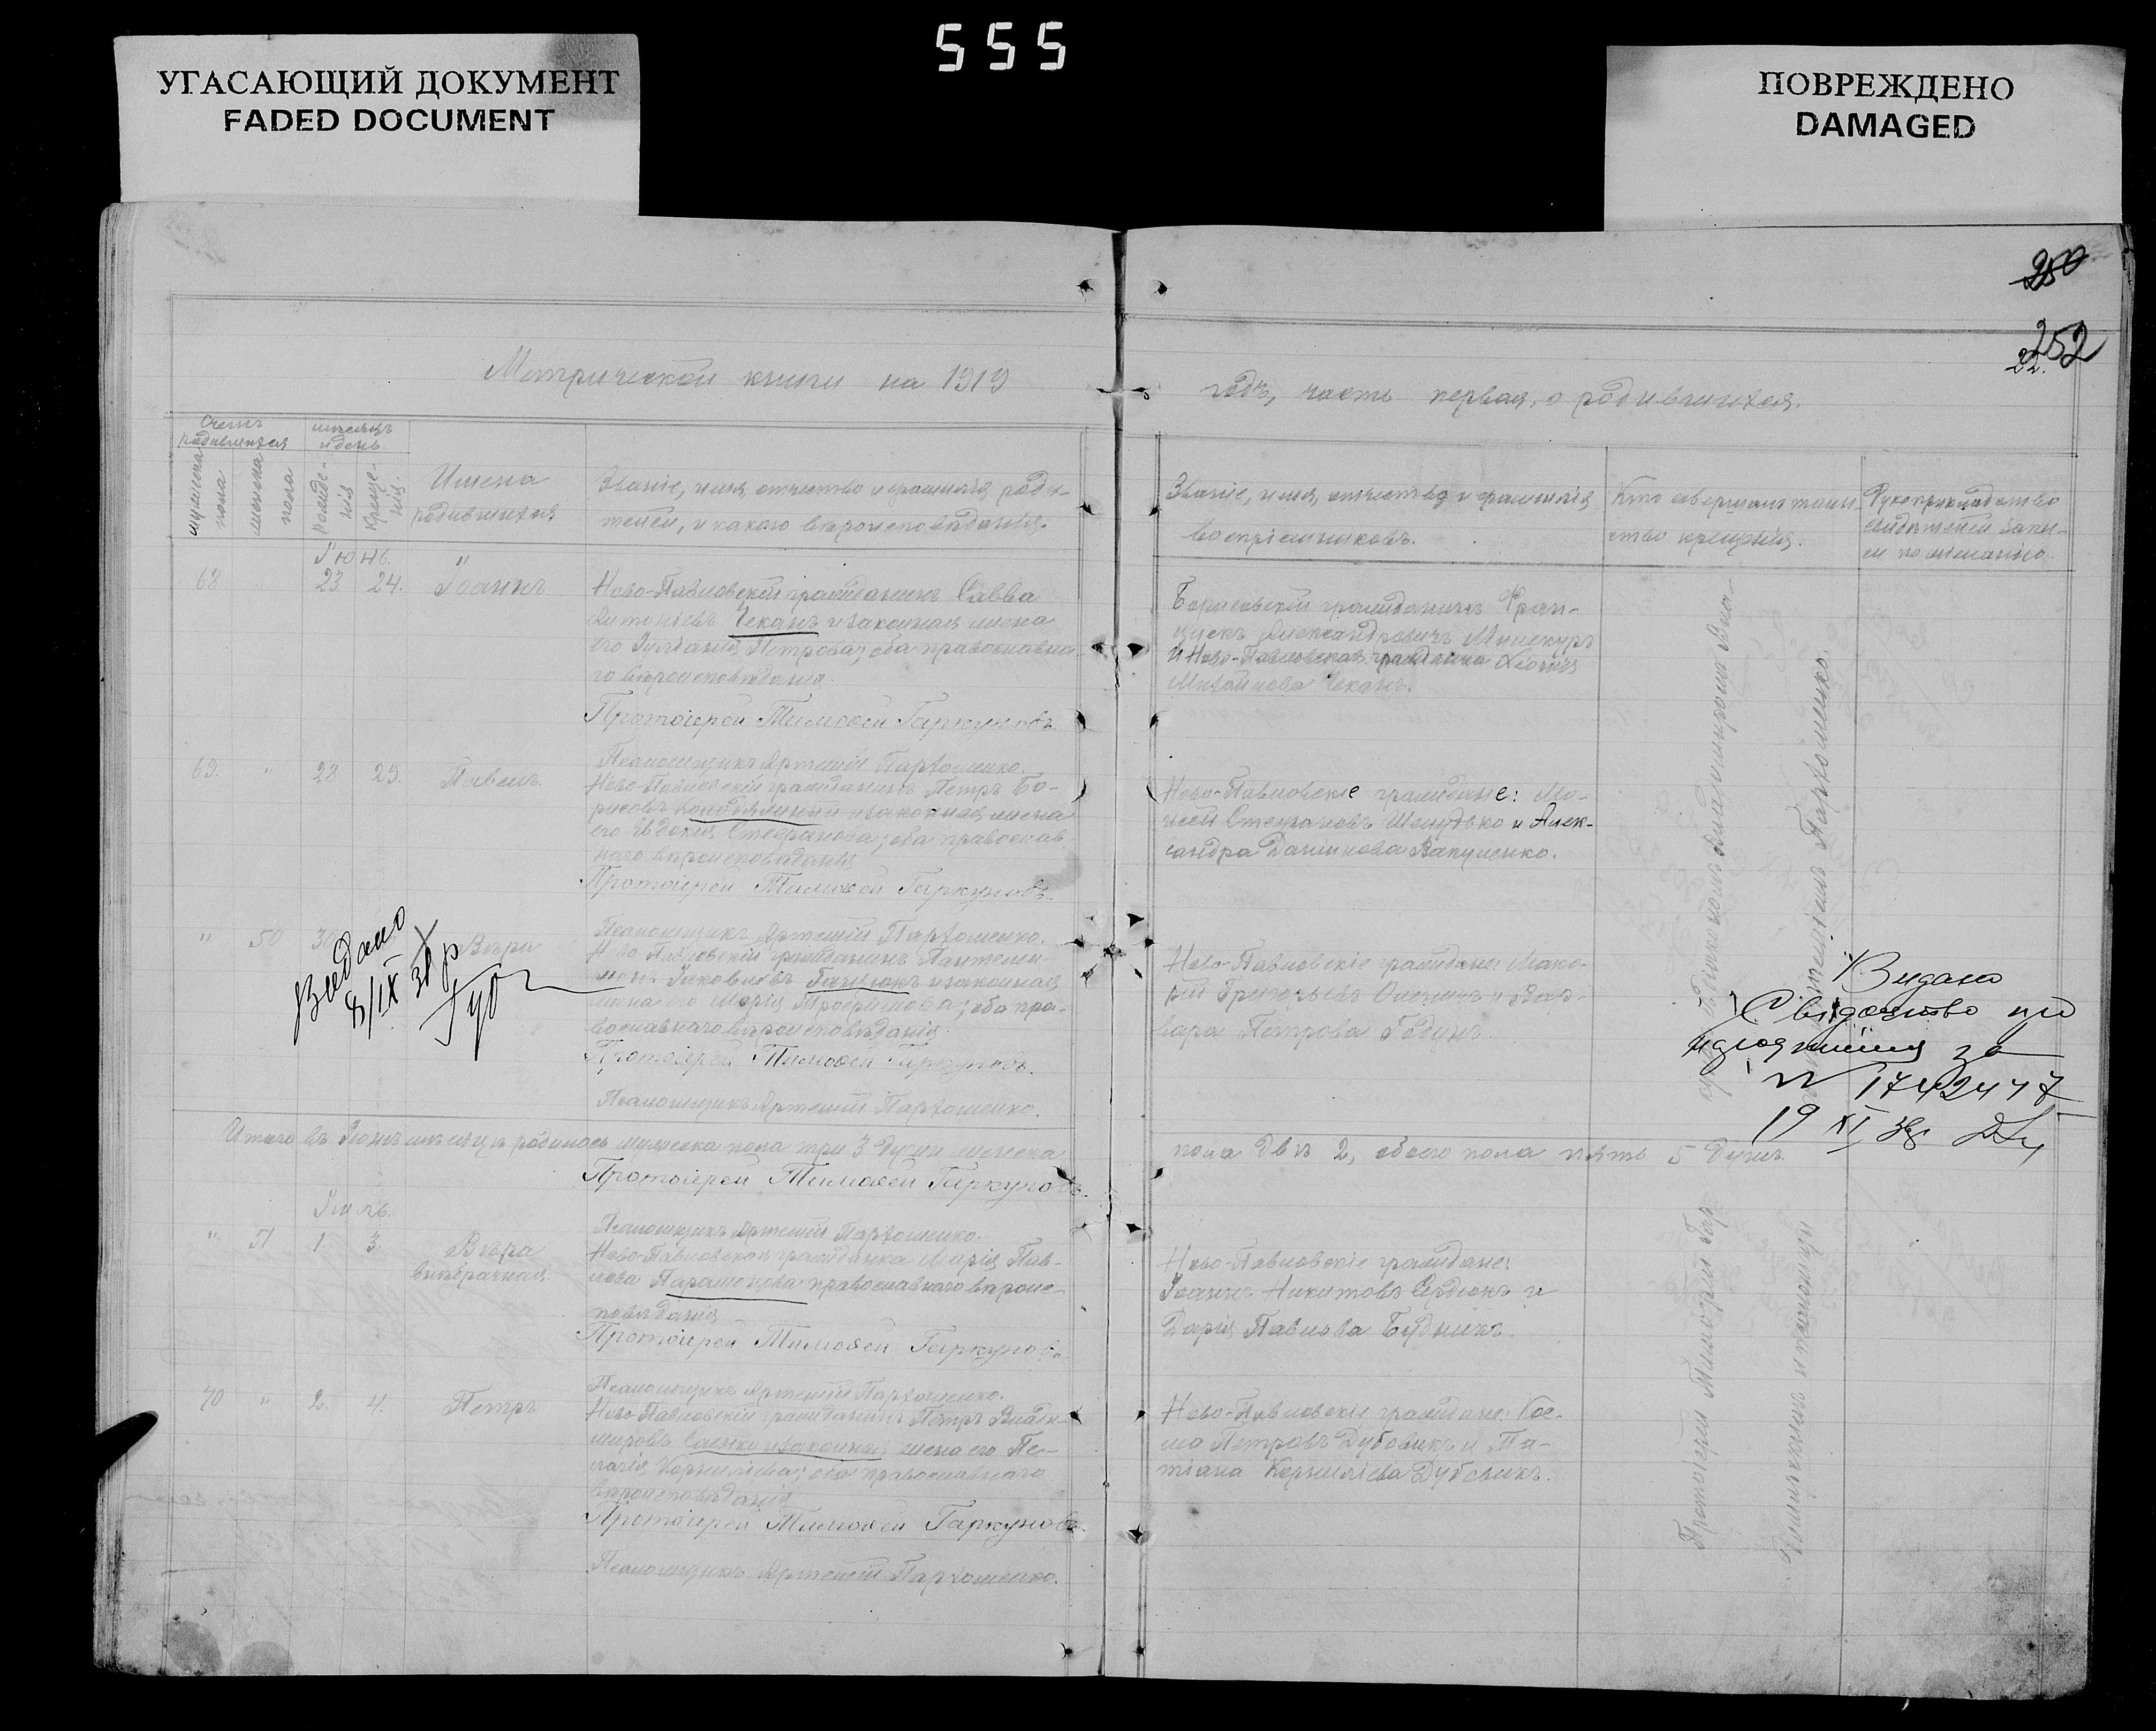 555
УГАСАЮЩИЙ ДОКУМЕНТ
FADED DOCUMENT
ПОВРЕЖДЕНО
DAMAGED
250
252
22.
Метрической книги на 1919
годъ, часть первая, о родившихся.
Счетъ родившихся
мужеска пола
женска пола
мѣсяцъ и день
рожденія
крещенія.
Имена
родившихся
Званіе, имя, отчество и фамилія роди-
телей, и какого вѣроисповѣданія.
Званіе, имя, отчество и фамилія
воспріемниковъ.
Кто совершалъ таин-
ство крещенія.
Рукоприкладство
свидѣтелей запи-
си по желанію.
Іюнь.
68 " 23 24. Іоаннъ
Ново-Павловскій гражданинъ Савва
Антоніевъ Чеканъ и законная жена
его Іуліанія Петрова; оба православна-
го вѣроисповѣданія.
Протоіерей Тимоѳей Гаркуновъ.
Псаломщикъ Артемій Пархоменко.
Борисовскій гражданинъ Фран-
цискъ Александровичъ
и Ново-Павловская гражданка Ксенія
Михайлова Чеканъ.
69. " 28 29. Павелъ
Ново-Павловскій гражданинъ Петръ Бо-
рисовъ и законная жена
его Евдокія Стефанова; оба православ-
наго вѣроисповѣданія
Протоіерей Тимоѳей Гаркуновъ.
Псаломщикъ Артемій Пархоменко.
Ново-Павловскіе граждане: Мо-
исей Стефановъ Шелудько и Алек-
сандра Даниилова Вакуленко.
" 50 30 Вѣра
Ново-Павловскій гражданинъ Пантелеи-
монъ Іаковлевъ и законная
жена его Марія Трофимова; оба пра-
вославнаго вѣроисповѣданія.
Протоіерей Тимоѳей Гаркуновъ.
Псаломщикъ Артемій Пархоменко.
Ново-Павловскіе граждане: Мака-
рій Григорьевъ и Вар-
вара Петрова Годинъ.
Видано
8/IX 30 р
Видано
Свідоцтво про
народження за
№ 1742477
19 XI
Итого въ Іюнѣ мѣсяцѣ родилось мужеска пола три 3 души женска
пола двѣ 2, обоего пола пять 5 душъ.
Протоіерей Тимоѳей Гаркуновъ.
Псаломщикъ Артемій Пархоменко.
Іюль.
" 51 1. 3. Вѣра
внѣбрачная
Ново-Павловская гражданка Марія Пав-
лова Парамонова православнаго вѣроис-
повѣданія
Протоіерей Тимоѳей Гаркуновъ.
Псаломщикъ Артемій Пархоменко.
Ново-Павловскіе граждане:
Іоаннъ Никитовъ Сердюкъ и
Дарія Павлова Будникъ.
70 " 2. 4. Петръ
Ново-Павловскій гражданинъ Петръ Влади-
мировъ Саенко и законная жена его Пе-
лагія Корниліева; оба православнаго
вѣроисповѣданія
Протоіерей Тимоѳей Гаркуновъ.
Псаломщикъ Артемій Пархоменко.
Ново-Павловскіе граждане: Кос-
ма Петровъ Дубовикъ и Та-
тіана Корниліева Дубовикъ.
Протоіерей Тимоѳей Гар
Владимиромъ
Пархоменко.